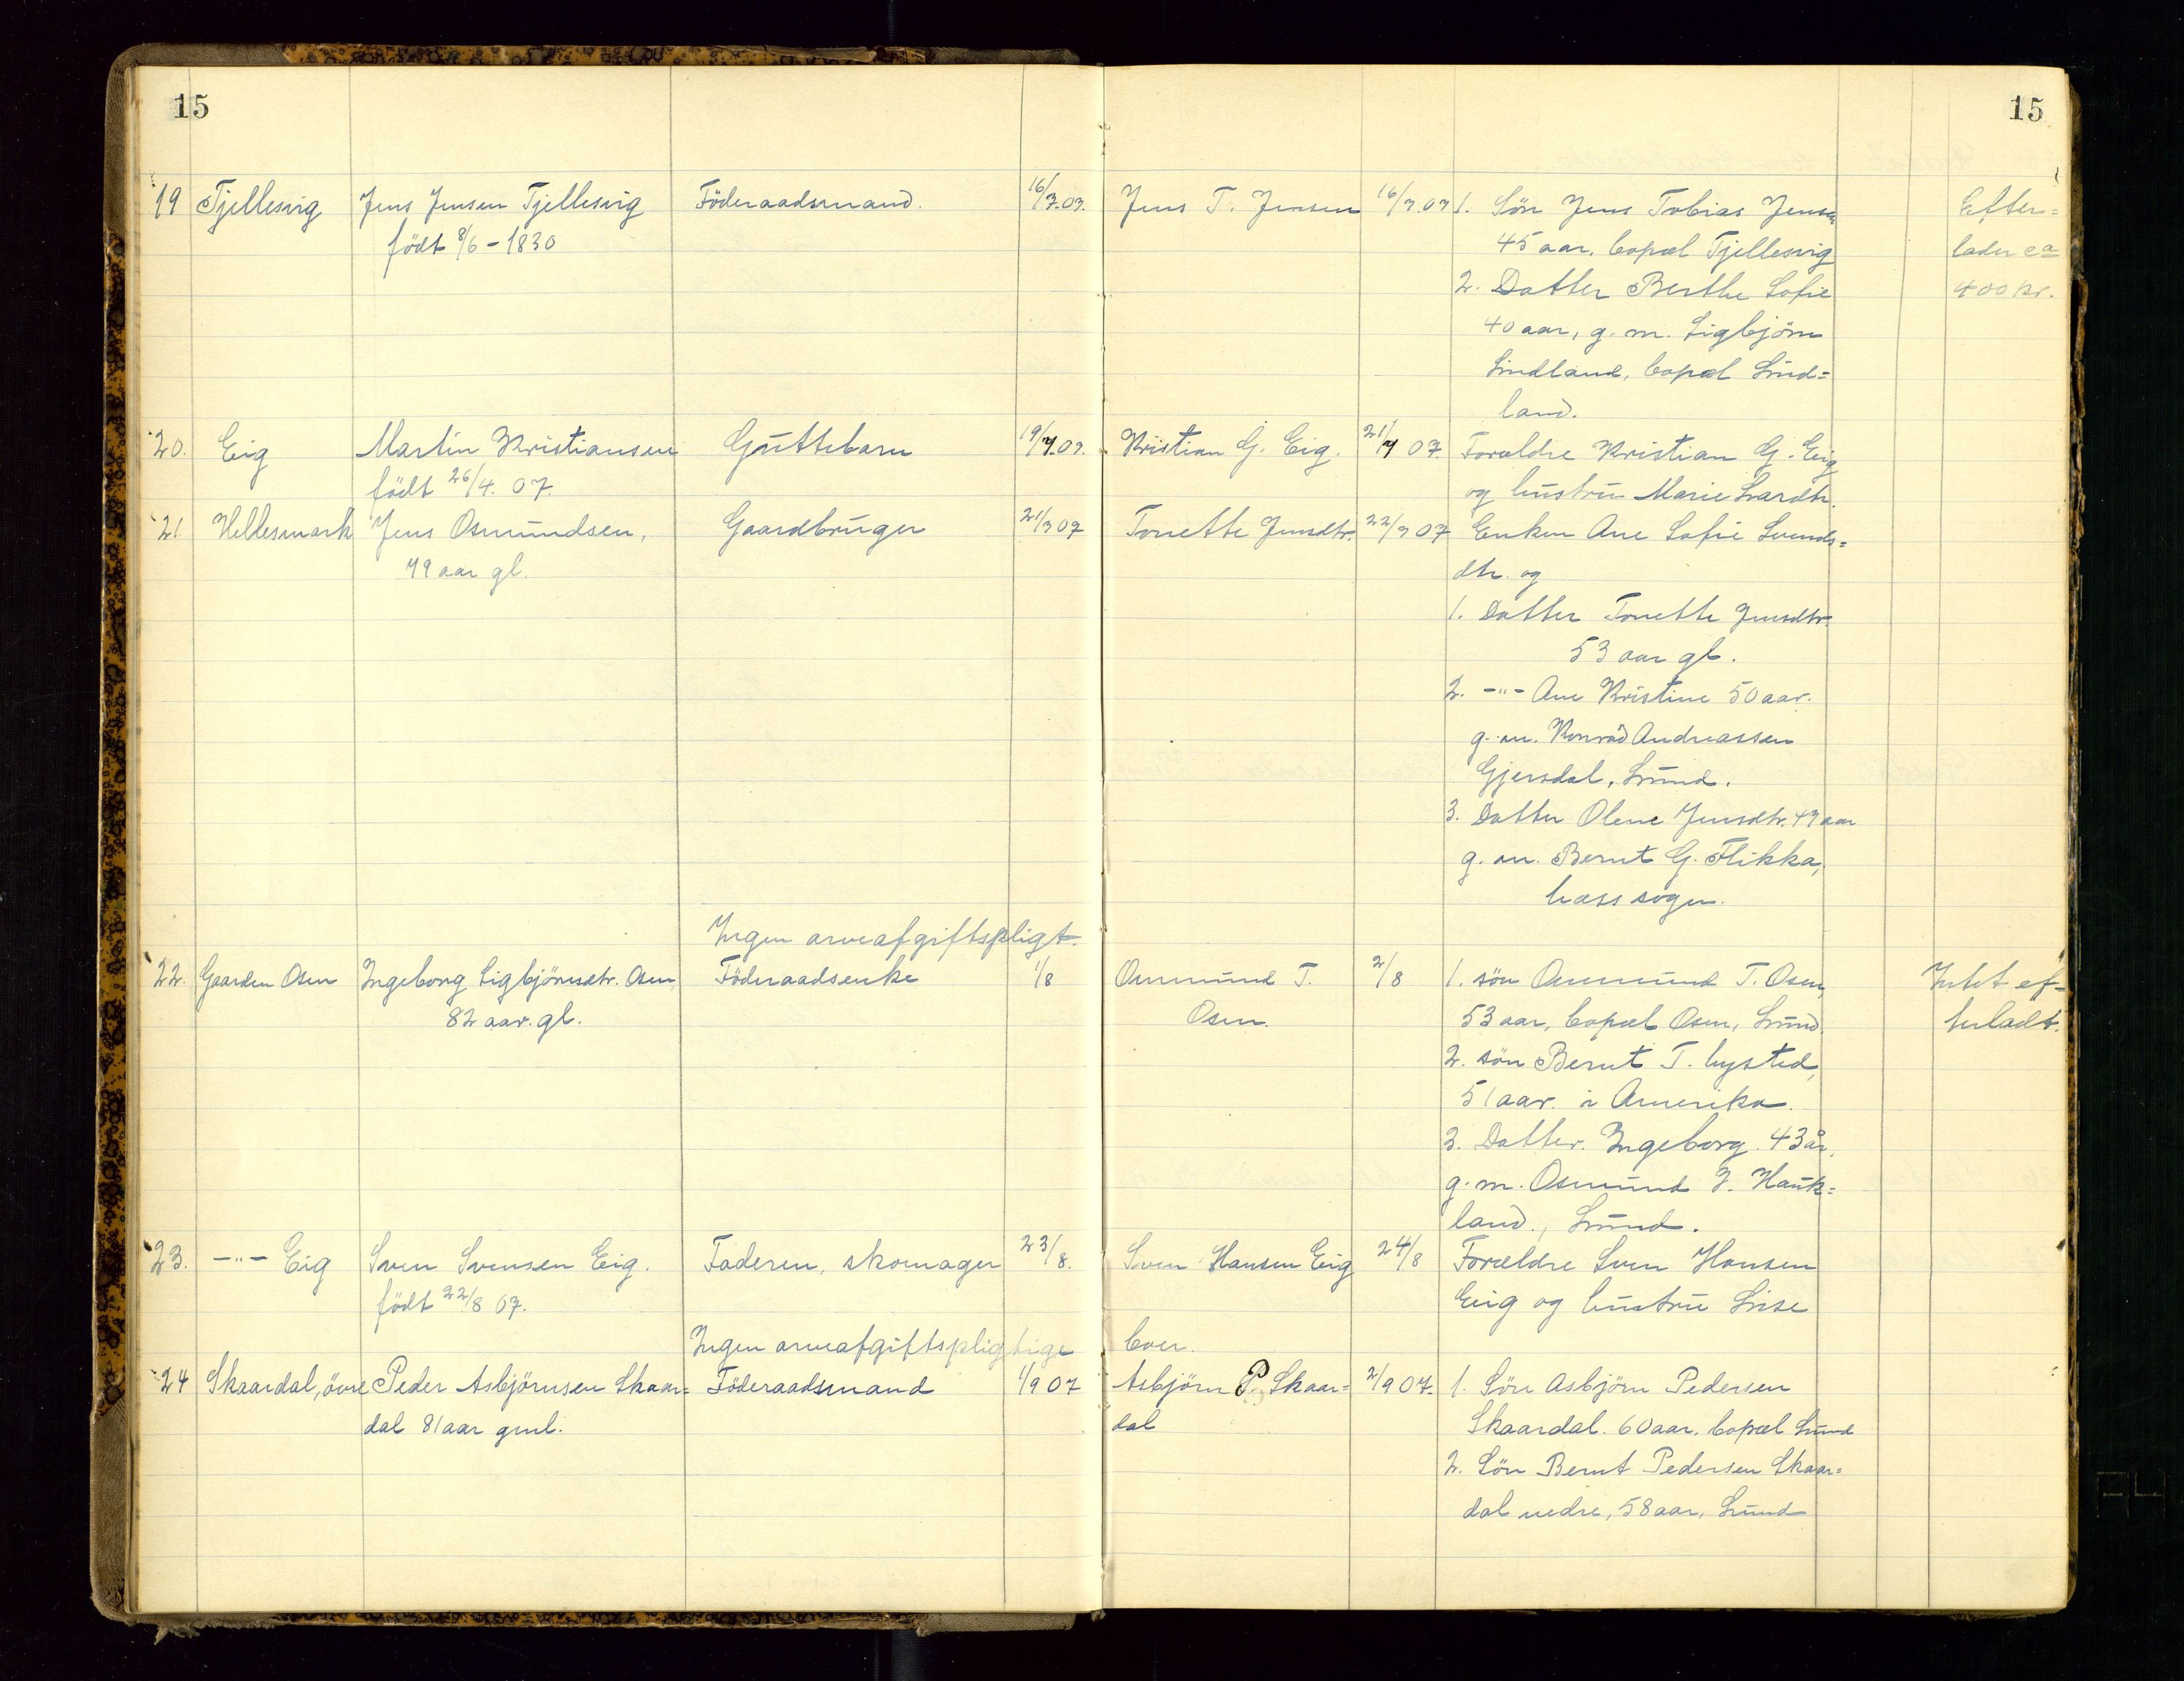 15
15
19 Tjellesvig Jens Jensen Tjellesvig Föderaadsmand. 16/7.07. Jens T. Jensen 16/7.07 1. Sön Jens Tobias Jensen Efter=
født 8/6 - 1830 45 aar, bopæl Tjellesvig lader ca
2. Datter Berthe Sofie 400 kr.
40 aar, g. m. Sigbjörn
Lindland, bopæl Lind=
land.
20. Eig Martin Kristiansen Guttebarn 19/7.07. Kristian G. Eig. 21/7 07. Forældre Kristian G. Eig
födt 26/4. 07. og hustru Marie Lardtr.
21. Hellesmark Jens Osmundsen, Gaardbruger 21/7 07 Tonette Jensdtr. 22/7 07 Enken Ane Sofie Svends=
79 aar gl. dtr. og
1. Datter Tonette Jensdtr.
53 aar gl.
2. -"- Ane Kristine 50 aar.
g. m. Konrad Andreassen
Gjersdal, Lund.
3. Datter Olene Jensdtr. 47 aar
g. m. Bernt G. Flikka,
bass sogn.
Ingen arveafgiftspligt.
22. Gaarden Osen Ingeborg Sigbjörnsdtr. Osen, Föderaadsenke 1/8 Ommund T. 2/8 1. sön Ommund T. Osen, Intet ef=
82 aar. gl. Osen. 53 aar, bopæl Osen, Lund. terladt.
2. sön Bernt T. bysted,
51 aar. i Amerika.
3. Datter. Ingeborg. 43 år,
g. m. Osmund J. Hauk=
land., Lund.
23. -"- Eig Sven Svensen Eig. Faderen, skomager 23/8. Sven Hansen Eig 24/8 Forældre Sven Hansen
födt 22/8 07. Eig og hustru Lise
Ingen arveafgiftspligtige boer.
24 Skaardal, övre Peder Asbjörnsen Skaar= Föderaadsmand 1/9 07 Asbjörn P. Skaar= 2/9 07. 1. Sön Asbjörn Pedersen
dal 81 aar gml. dal Skaardal. 60 aar. bopæl Lund
2. Sön Bernt Pedersen Skaar=
dal nedre, 58 aar, Lund